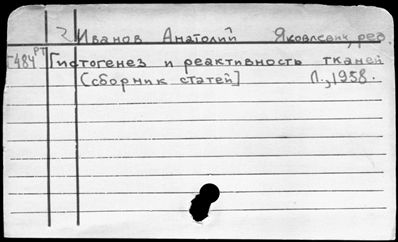 Иванов Анатолий Яковлевич, ред.
Г484 РТ Гистогенез и реактивность тканей
[сборник статей] Л., 1958.